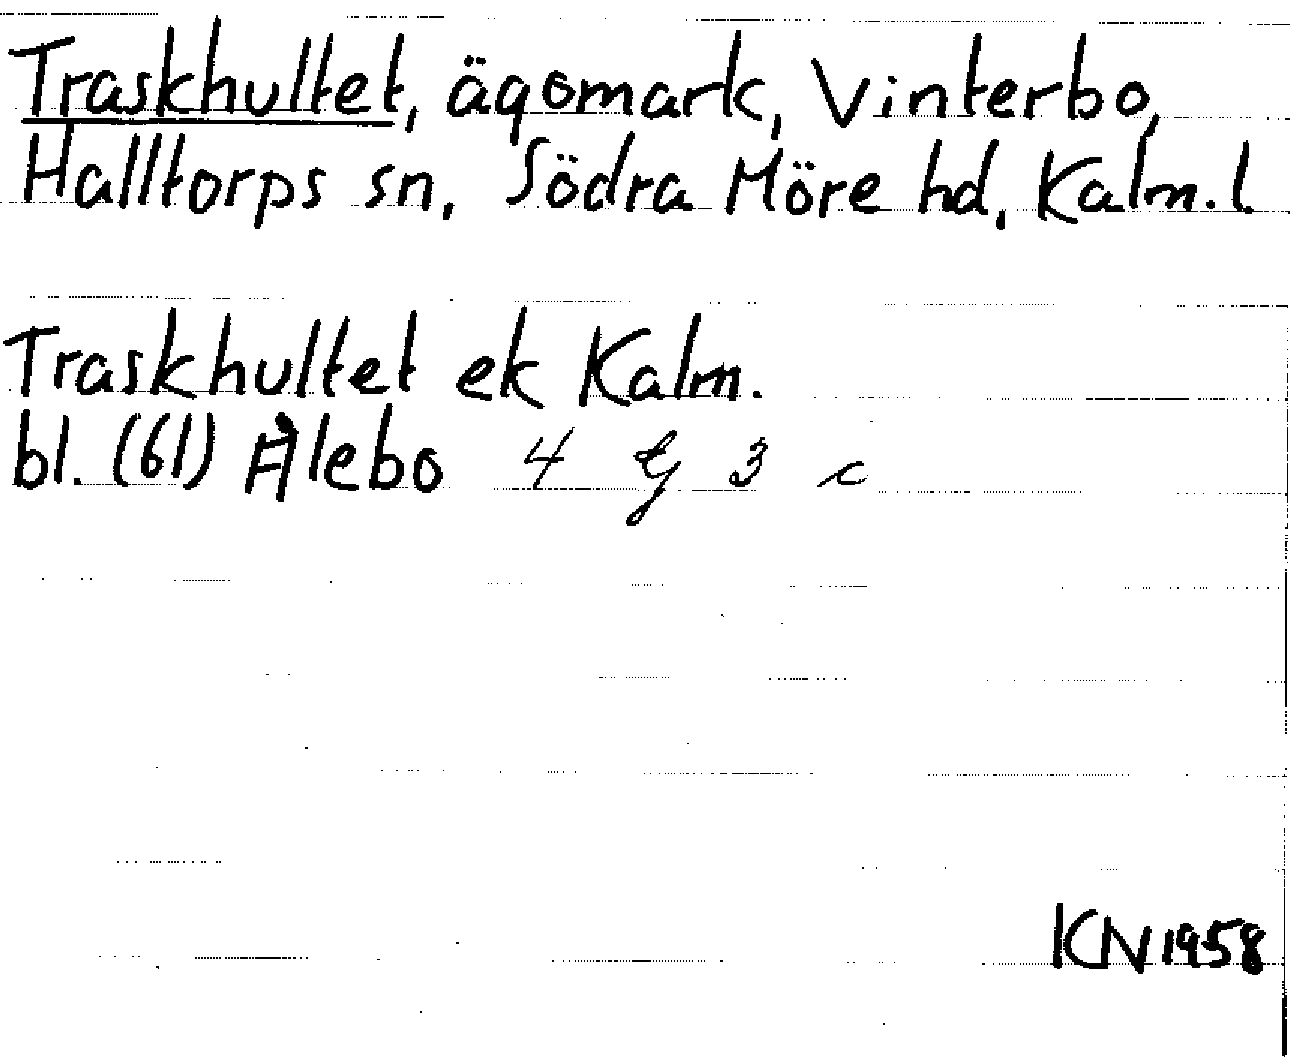 Traskhultet, ägomark, Vinterbo,
Halltorps sn, Södra Möre hd, Kalm. l.
Traskhultet ek Kalm.
bl. (61) Ålebo 4 G 3 c
KN 1958